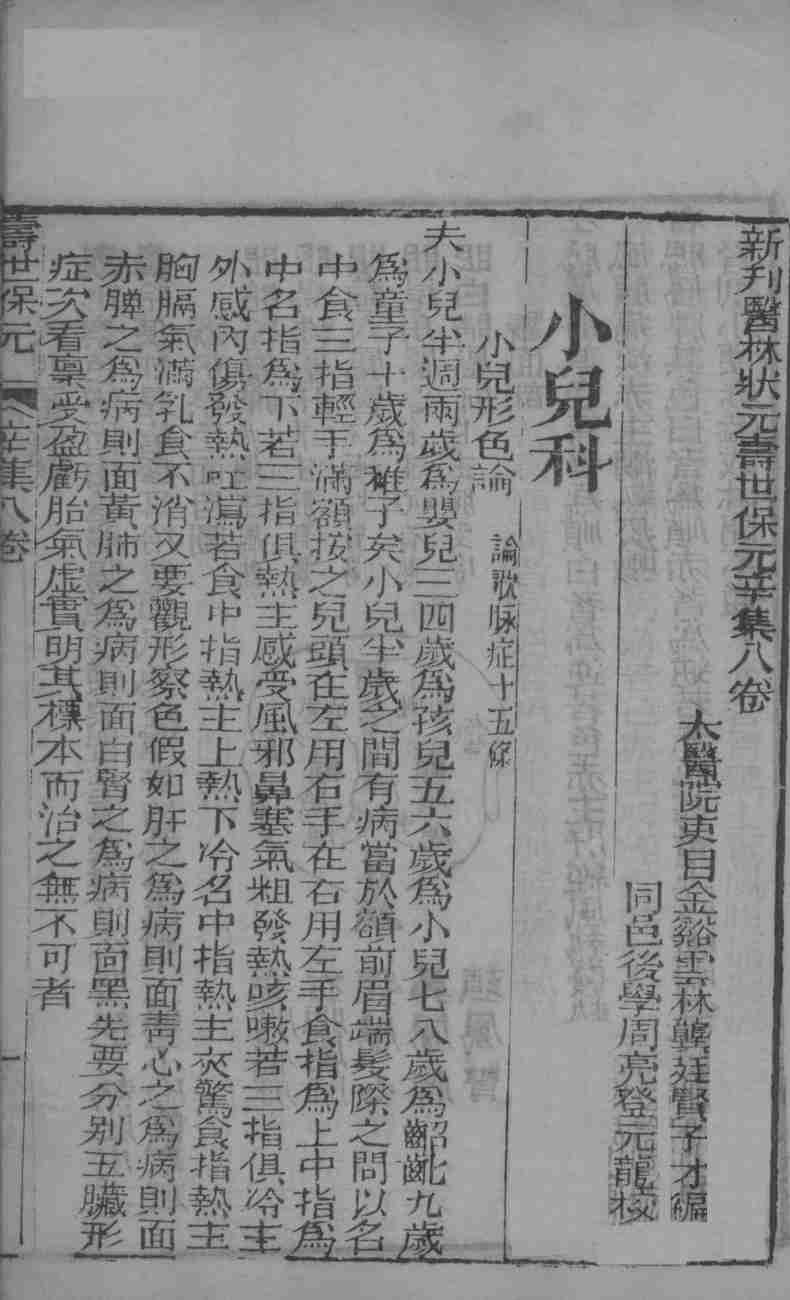 新刊醫林狀元壽世保元辛集八卷
太醫院吏目金谿雲林龔廷賢子才編
同邑後學周亮登元龍校
小兒科
小兒形色論 論歌脉症十五條
夫小兒半週兩歲爲嬰兒三四歲爲孩兒五六歲爲小兒七八歲爲齠齔九歲
爲童子十歲爲稚子矣小兒半歲之間有病當於額前眉端髮際之間以名
中食三指輕手滿額按之兒頭在左用右手在右用左手食指爲上中指爲
中名指爲下若三指俱熱主感受風邪鼻塞氣粗發熱咳嗽若三指俱冷主
外感內傷發熱吐瀉若食中指熱主上熱下冷名中指熱主夾驚食指熱主
胸膈氣滿乳食不消又要觀形察色假如肝之爲病則面靑心之爲病則面
赤脾之爲病則面黃肺之爲病則面白腎之爲病則面黑先要分别五臟形
症次看稟受盈虧胎氣虛實明其標本而治之無不可者
壽世保元 辛集八卷 一